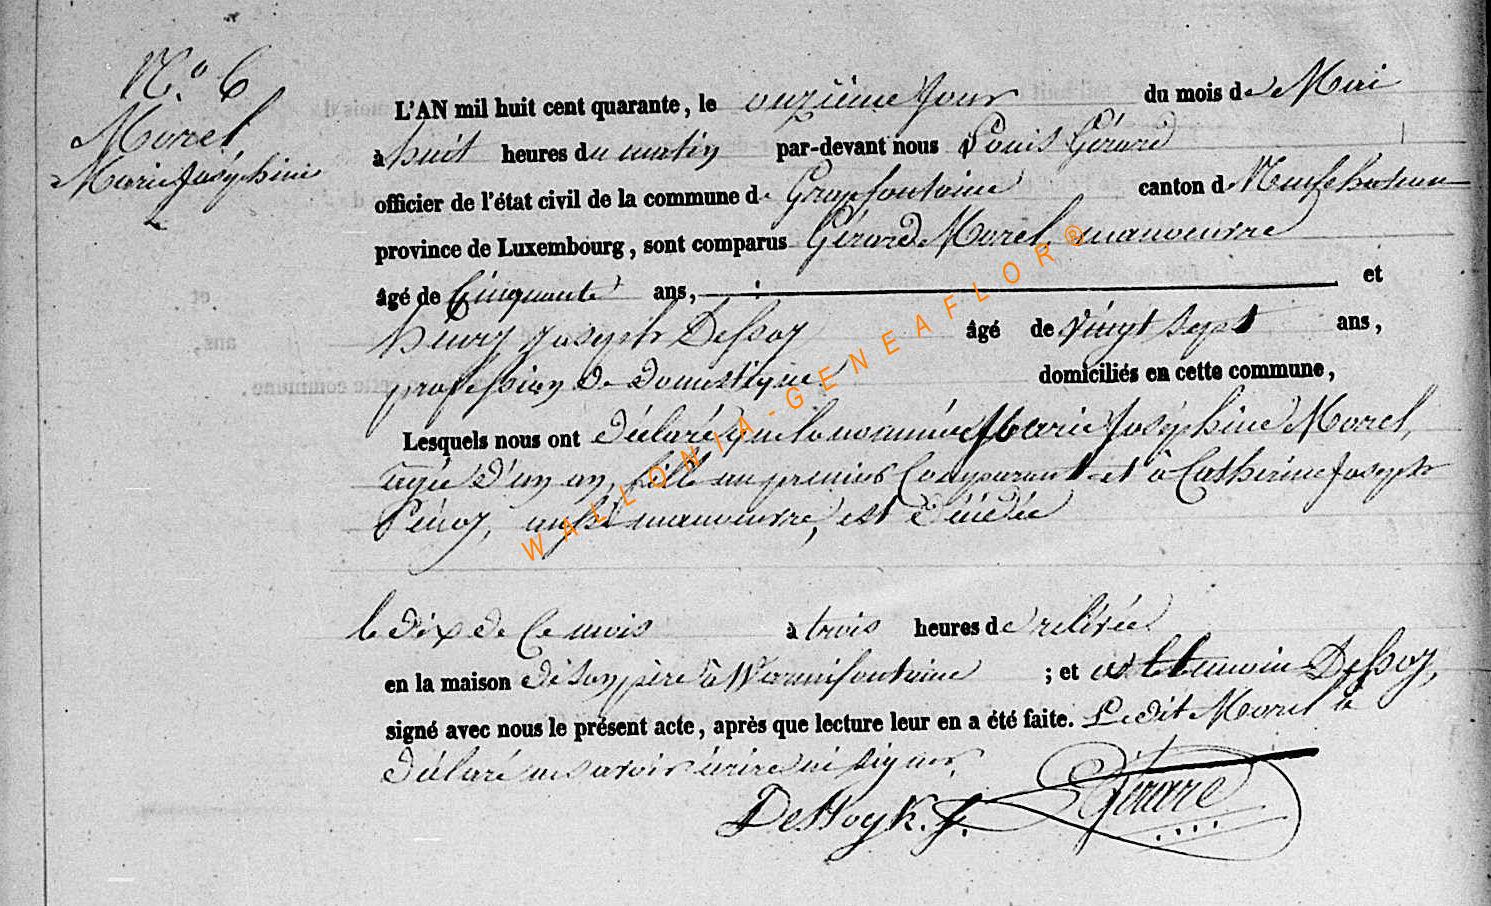 N.º 6
Morel,
Marie Joséphine
L'AN mil huit cent quarante, le onzième jour du mois de Mai
à huit heures du matin par-devant nous Louis Gérard
officier de l'état civil de la commune de Grapfontaine canton de Neufchateau
province de Luxembourg, sont comparus Gérard Morel, manoeuvre
âgé de Cinquante ans, et
henry joseph Dessoy âgé de vingt sept ans,
profession de domestique domiciliés en cette commune,
Lesquels nous ont déclaré que la nommée Marie Joséphine Morel,
agée d'un an, fille au premier Comparant et à Catherine Joseph
aussi manoeuvre, est décédée
le dix de Ce mois à trois heures de relévée
en la maison de son père à Warmifontaine ; et le temoin Dessoy,
signé avec nous le présent acte, après que lecture leur en a été faite. Ledit Morel a
déclaré ne savoir écrire ni signer.
Dessoy h. j. Gérard
WALLONIA-GENEAFLOR®